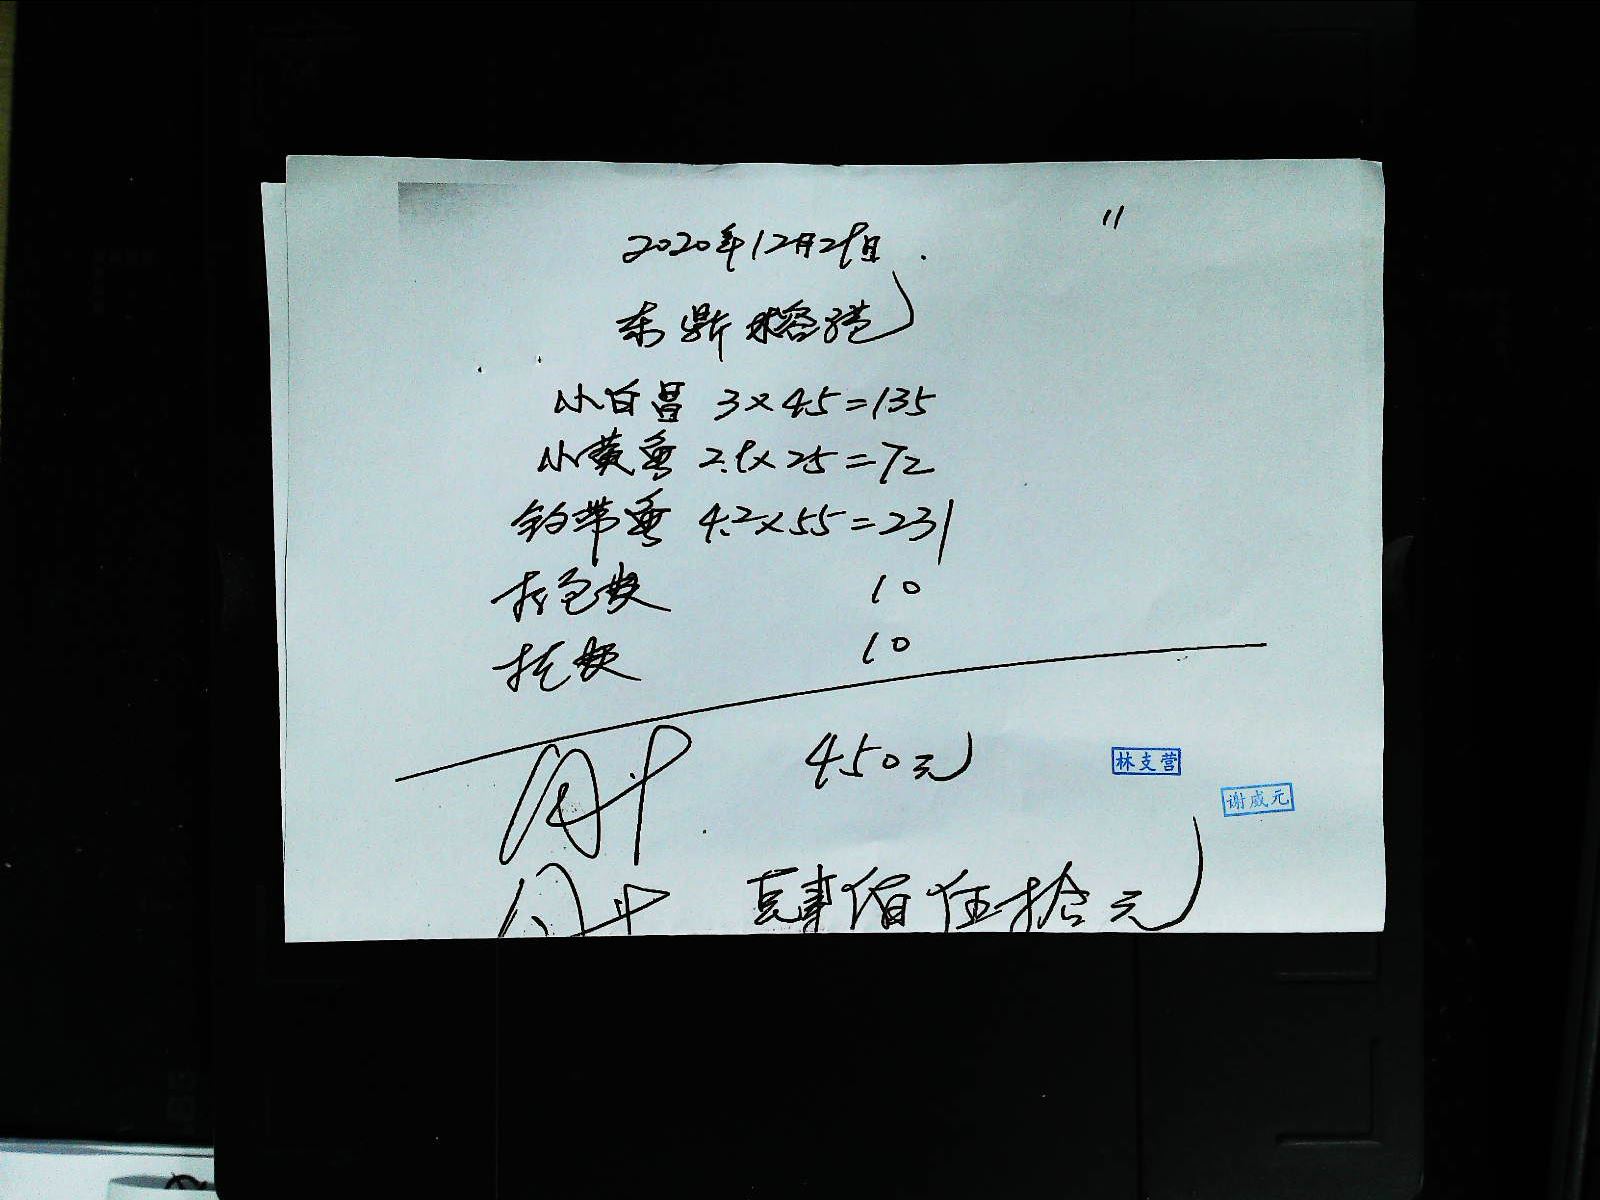 11
2020年12月29日
东鼎榕港
小白昌 3×45=135
小黄鱼 2.9×25=72
钓带鱼 4.2×55=231
打包费 10
托费 10
450元
林支营
谢威元
肆佰伍拾元